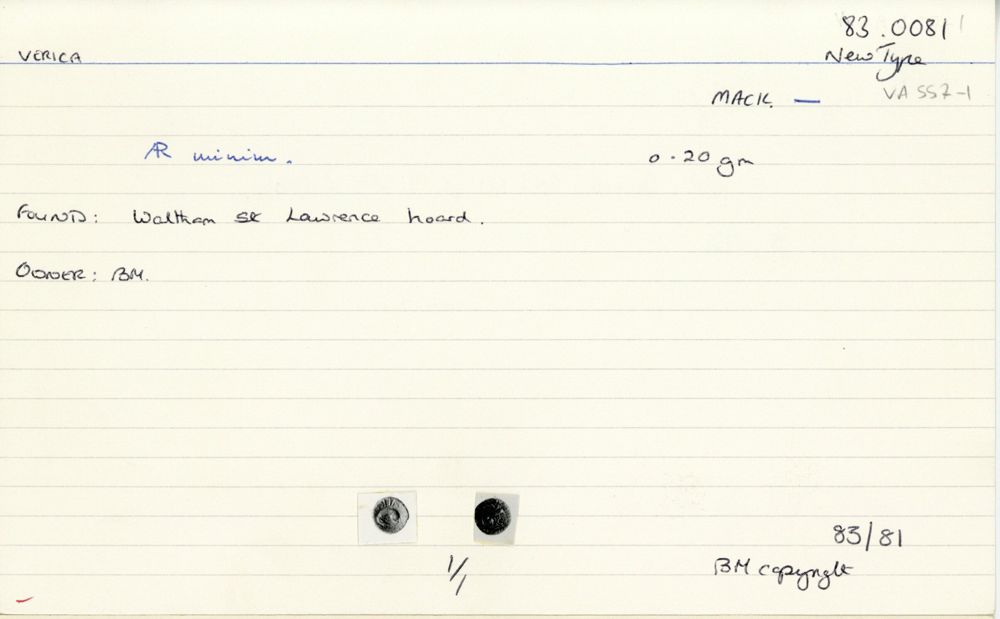 83.0081
VERICA
New Type
MACK. — VA 557-1
AR minim. 0.20 gm
FOUND: Waltham St Lawrence hoard.
OWNER: BM.
83/81
1/1
BM copyright